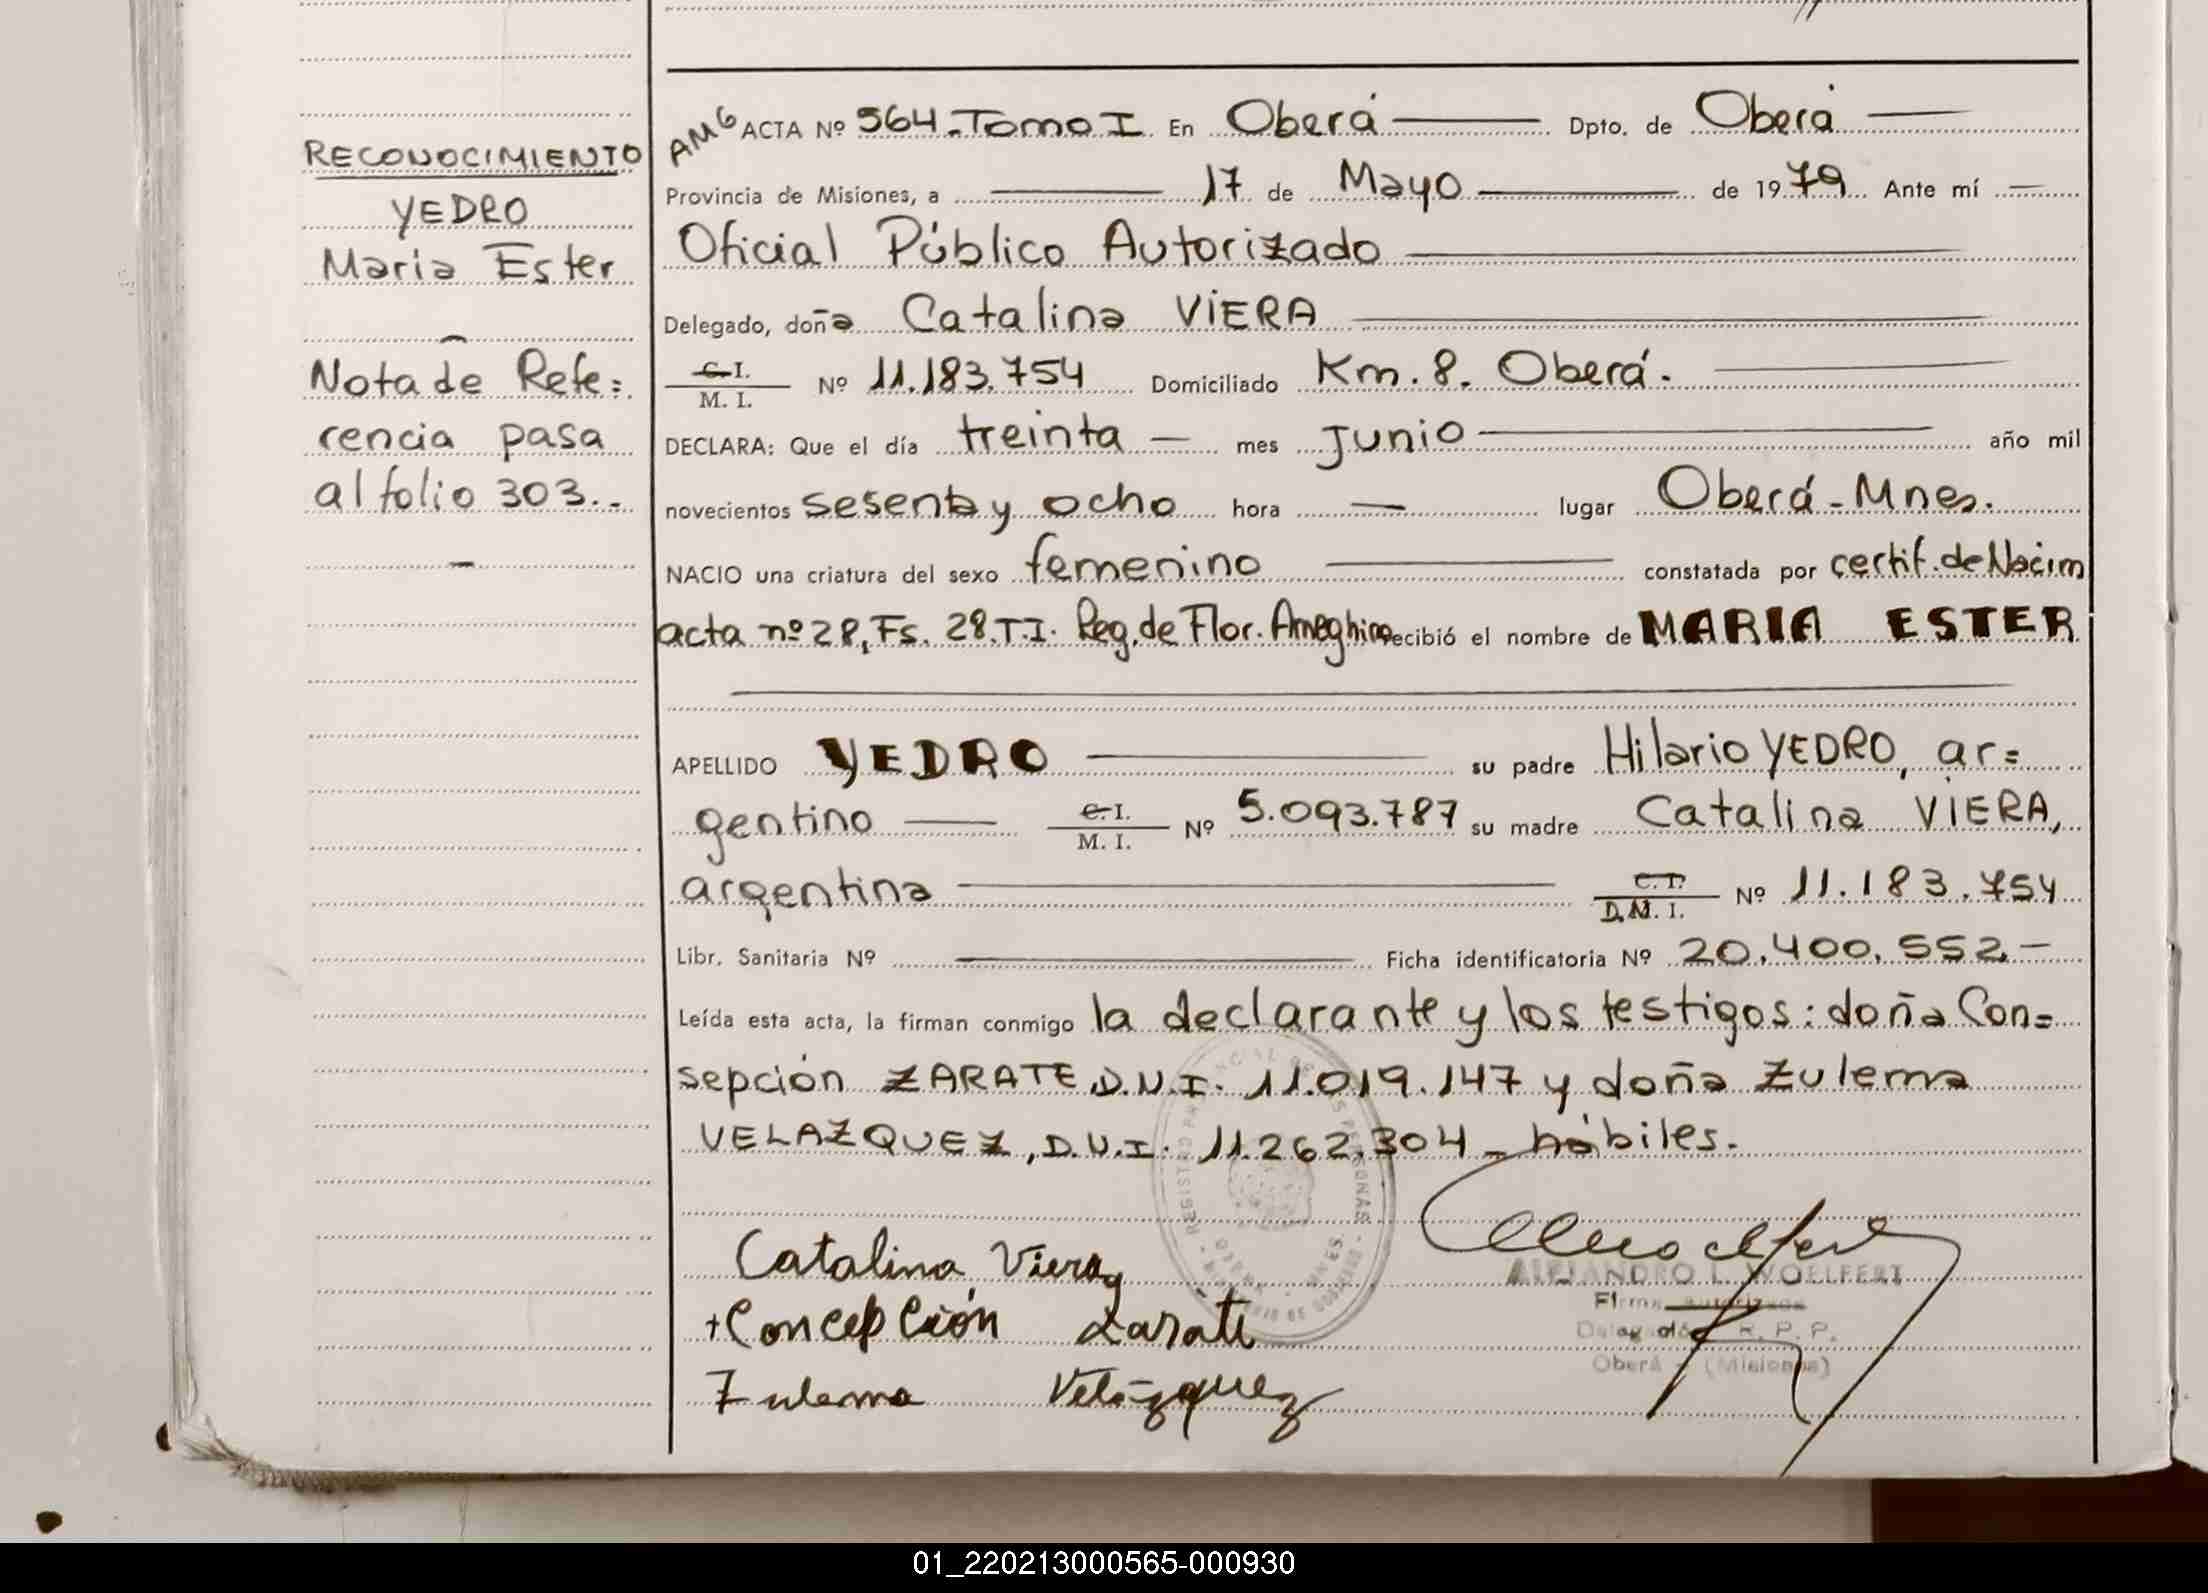 RECONOCIMIENTO
YEDRO
Maria Ester
Nota de Refe=
rencia pasa
al folio 303.-
AM6 ACTA Nº 564-Tomo I En Oberá Dpto. de Oberá
Provincia de Misiones, a 17 de Mayo de 1979 Ante mí
Oficial Público Autorizado
Delegado, doña Catalina VIERA
C.I. / M. I. Nº 11.183.754 Domiciliado Km. 8. Oberá.
DECLARA: Que el día treinta mes Junio año mil
novecientos sesenta y ocho hora — lugar Oberá - Mnes.
NACIO una criatura del sexo femenino constatada por certif. de Nacim
acta nº 28, Fs. 28. T.I. Reg. de Flor. Ameghino recibió el nombre de MARIA ESTER
APELLIDO YEDRO su padre Hilario YEDRO, ar=
gentino C.I. / M. I. Nº 5.093.787 su madre Catalina VIERA,
argentina C.I. / D.N.I. Nº 11.183.754
Libr. Sanitaria Nº Ficha identificatoria Nº 20.400.552.-
Leída esta acta, la firman conmigo la declarante y los testigos: doña Con=
sepción ZARATE, D.N.I. 11.019.147 y doña Zulema
VELAZQUEZ, D.N.I. 11.262.304 - hábiles.
Catalina Viera
+Concepción Zarate
Zulema Velázquez
ALEJANDRO L. WOELFERT
Firma autorizada
Delegación R. P. P.
Oberá - (Misiones)
01_220213000565-000930